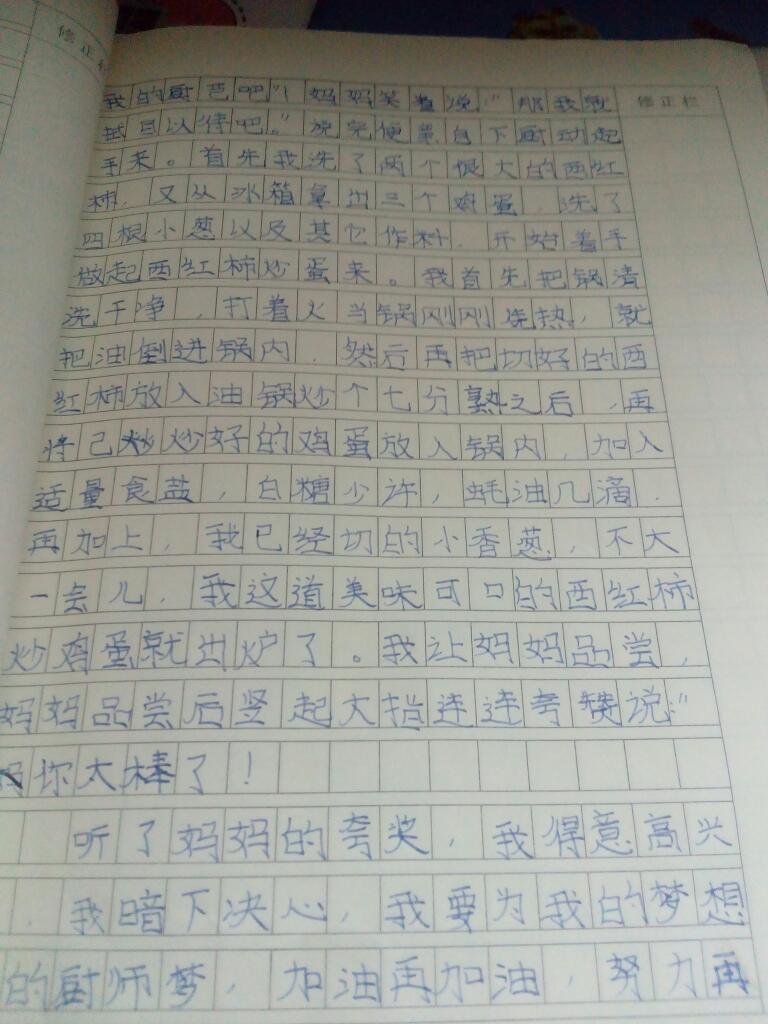 修正栏
修正栏
我的厨艺吧"! 妈妈笑着说:"那我就
拭目以待吧。"说完便亲自下厨动起
手来。首先我洗了两个很大的西红
柿,又从冰箱拿出三个鸡蛋 洗了
四根小葱以及其它作料,开始着手
做起西红柿炒蛋来。我首先把锅清
洗干净,打着火当锅刚刚烧热,就
把油倒进锅内,然后再把切好的西
红柿放入油锅炒个七分熟之后,再
将已炒好的鸡蛋放入锅内,加入
适量食盐,白糖少许,蚝油几滴,
再加上,我已经切的小香葱,不大
一会儿,我这道美味可口的西红柿
炒鸡蛋就出炉了。我让妈妈品尝,
妈妈品尝后竖起大拦连连夸赞说:"
你太棒了!
听了妈妈的夸奖,我得意高兴
,我暗下决心,我要为我的梦想
的厨师梦,加油再加油,努力再